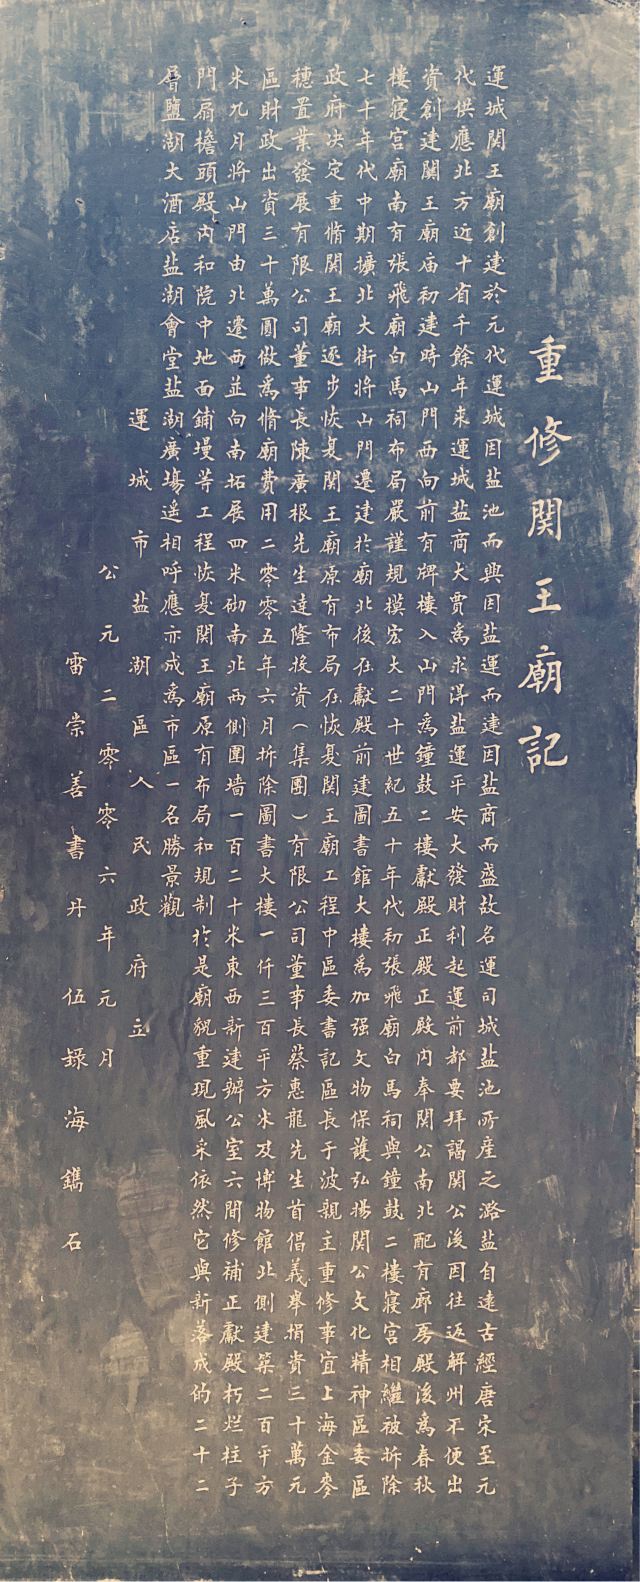 重修関王廟記
運城関王廟創建於元代運城因盐池而興因盐運而建因盐商而盛故名運司城盐池所產之潞盐自遠古經唐宋至元
代供應北方近十省千餘年来運城盐商大賈為求得盐運平安大發財利起運前都要拜謁関公後因往返解州不便出
資創建関王廟庙初建時山門西向前有牌樓入山門為鐘鼓二樓獻殿正殿正殿内奉関公南北配有廊房殿後為春秋
樓寝宮廟南有張飛廟白馬祠布局嚴謹規模宏大二十世紀五十年代初張飛廟白馬祠與鐘鼓二樓寝宮相繼被拆除
七十年代中期擴北大街將山門遷建於廟北後在獻殿前建圖書館大樓為加强文物保護弘揚関公文化精神區委區
政府决定重脩関王廟逐步恢复関王廟原有布局在恢复関王廟工程中區委書記區長于波親主重修事宜上海金麥
穗置業發展有限公司董事長陳廣根先生達隆投資（集團）有限公司董事長蔡惠龍先生首倡義舉捐資三十萬元
區財政出資三十萬圓做為脩廟費用二零零五年六月拆除圖書大樓一仟三百平方米及博物館北側建築二百平方
米九月將山門由北遷西並向南拓展四米砌南北两側圍墙一百二十米東西新建辦公室六間修補正獻殿朽烂柱子
門扇檐頭殿内和院中地面鋪墁等工程恢复関王廟原有布局和規制於是廟貌重現風采依然它與新落成的二十二
層鹽湖大酒店盐湖會堂盐湖廣場遥相呼應亦成為市區一名勝景觀
運城市盐湖區人民政府立
公元二零零六年元月
雷崇善書丹 伍録海鐫石